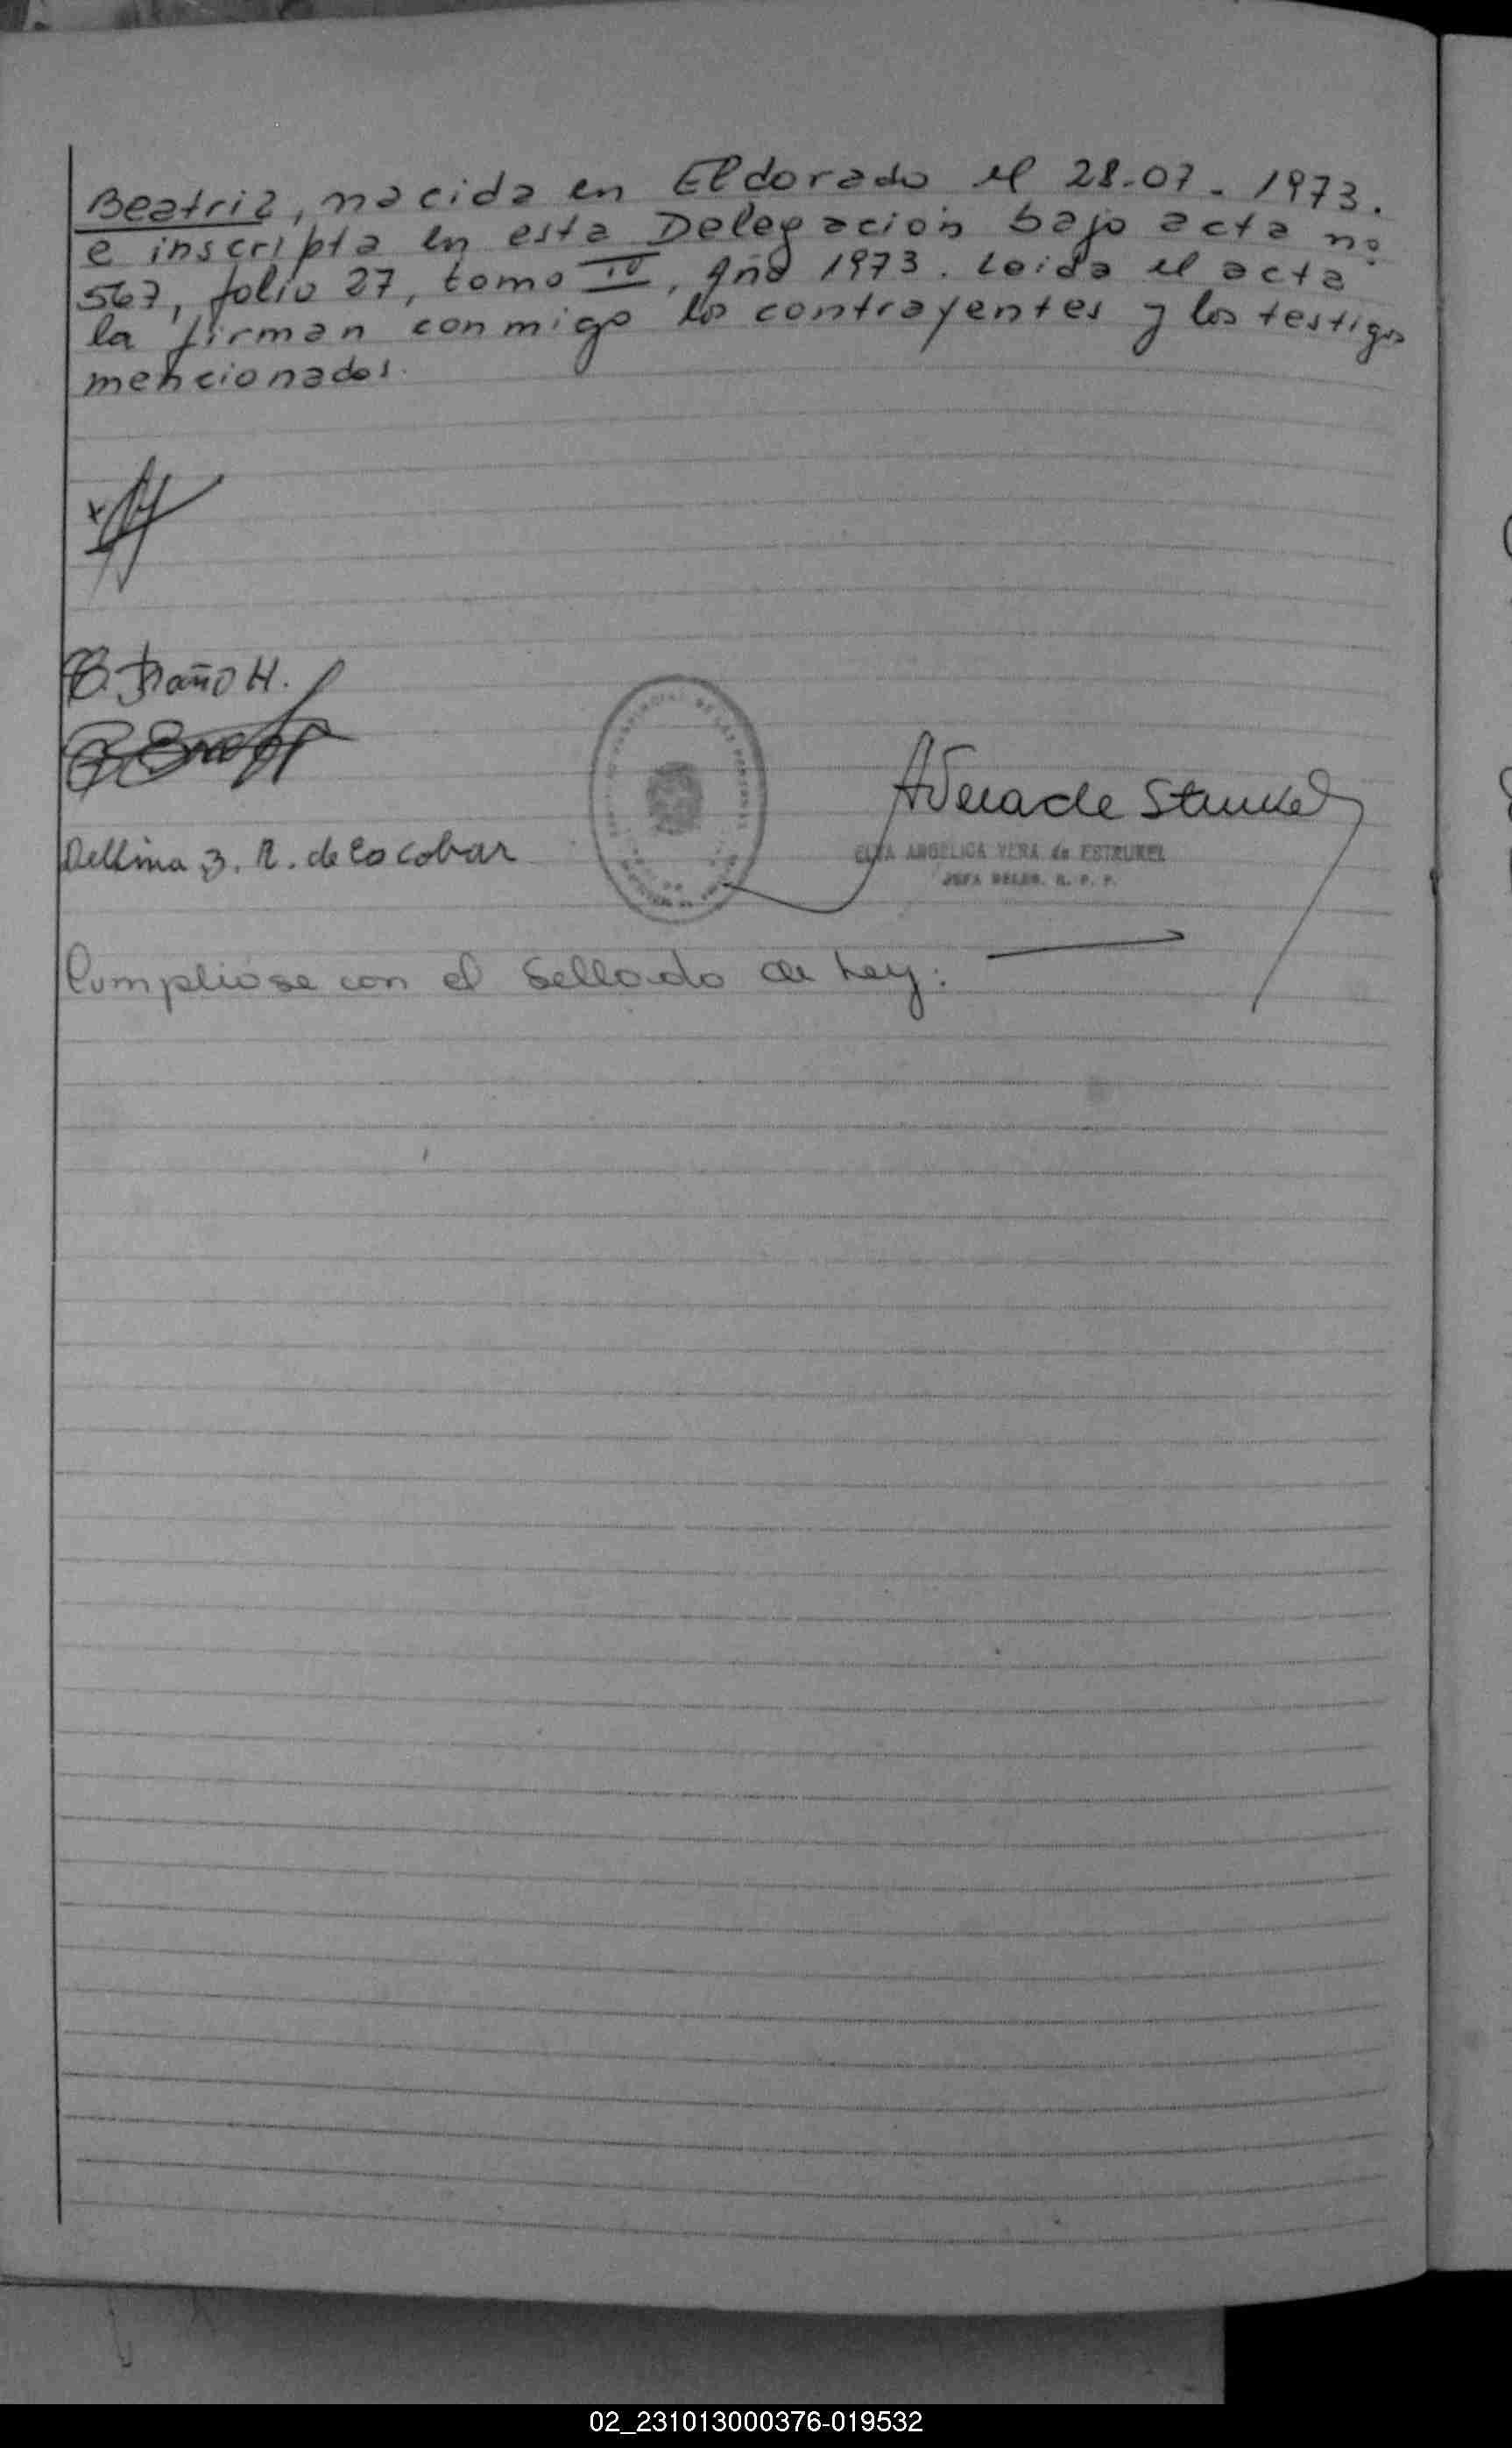 Beatriz, nacida en Eldorado el 28-07-1973.
e inscripta en esta Delegación bajo acta nº
567, folio 27, tomo IV, Año 1973. Leida el acta
la firman conmigo los contrayentes y los testigos
mencionados.
H.
Delfina B. R. de Escobar
AVera de Struckel
ELVA ANGELICA VERA de ESTRUKEL
JEFA DELEG. R. P. P.
Cumplióse con el Sellado de Ley.
02_231013000376-019532